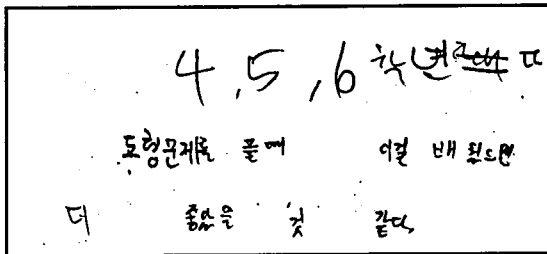 4,5,6 학년 때
도형문제를 풀때 이걸 배웠으면
더 좋았을 것 같다.